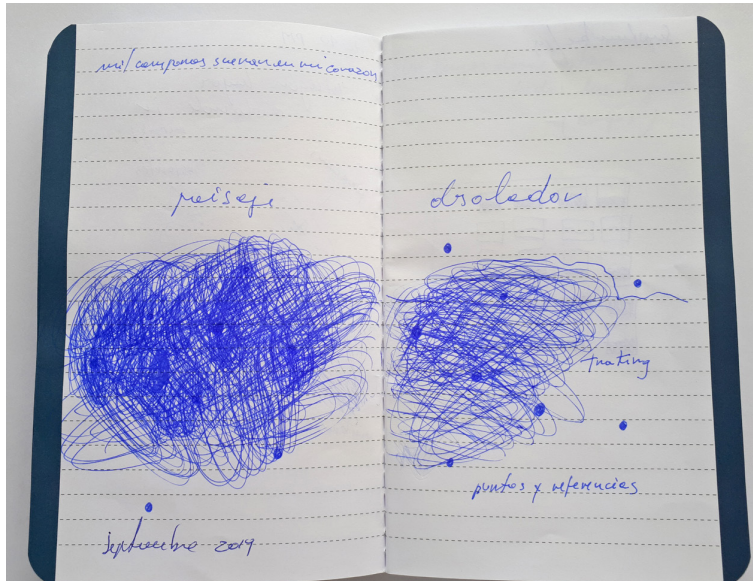 mil campanas suenan en mi corazon
paisaje
dsolador
traking
puntos y referencias
septiembre 2019